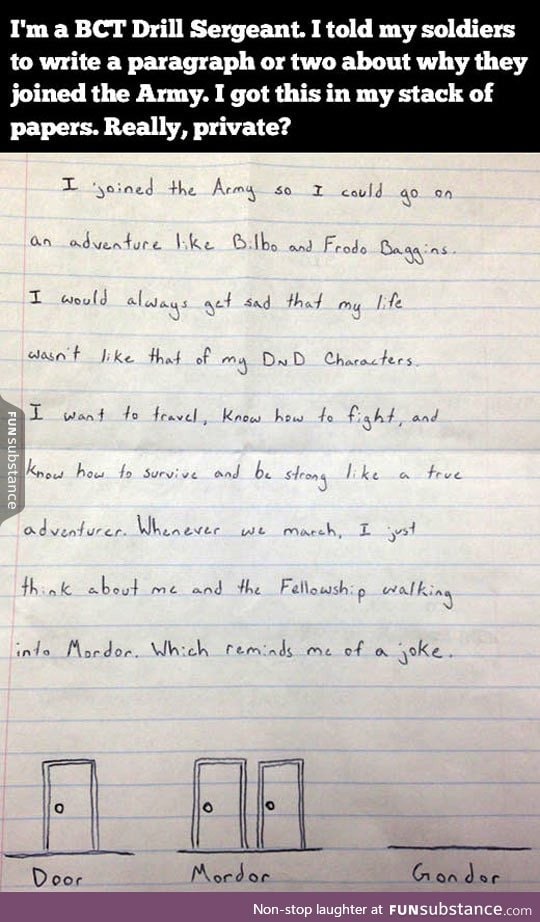 I'm a BCT Drill Sergeant. I told my soldiers
to write a paragraph or two about why they
joined the Army. I got this in my stack of
papers. Really, private?
I joined the Army so I could go on
an adventure like Bilbo and Frodo Baggins.
I would always get sad that my life
wasn't like that of my DnD Characters.
I want to travel, know how to fight, and
know how to survive and be strong like a true
adventurer. Whenever we march, I just
think about me and the Fellowship walking
into Mordor. Which reminds me of a joke.
Door Mordor Gondor
FUNsubstance
Non-stop laughter at FUNsubstance.com